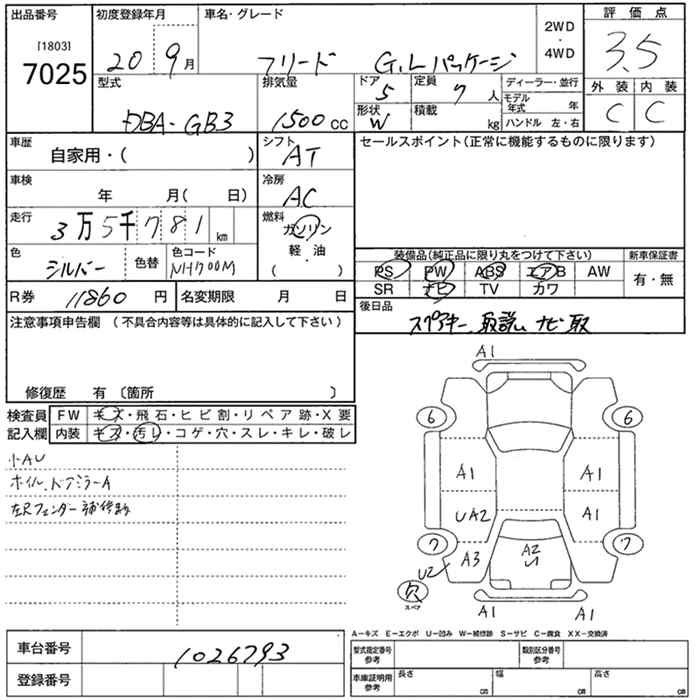 出品番号
[1803]
7025
初度登録年月
20 9月
車名・グレード
フリード G.Lパッケージ
2WD
・
4WD
評価点
3.5
外装 内装
C C
型式
DBA-GB3
排気量
1500 cc
ドア
5
定員
7 人
形状
W
積載
kg
ディーラー・並行
モデル年式 年
ハンドル 左・右
車歴
自家用・( )
シフト
AT
セールスポイント(正常に機能するものに限ります)
車検
年 月( 日)
冷房
AC
走行
3万5千781 km
燃料
ガソリン
軽・油
( )
色
シルバー
色替
色コード
NH700M
装備品(純正品に限り丸をつけて下さい)
新車保証書
PS PW ABS エアB AW
SR ナビ TV カワ
有・無
R券 11860 円
名変期限 月 日
後日品
スペアキー、取説、ナビ取
注意事項申告欄(不具合内容等は具体的に記入して下さい)
修復歴 有〔箇所 〕
検査員
記入欄
FW キズ・飛石・ヒビ割・リペア跡・X要
内装 キズ・汚レ・コゲ・穴・スレ・キレ・破レ
小AU
ホイル、ドアミラーA
左Rフェンダー補修跡
A1
6 6
A1 A1
UA2 A1
7 A3 A2 7
U1
U2
欠
スペア
A1 A1
A-キズ E-エクボ U-凹み W-補修跡 S-サビ C-腐食 XX-交換済
車台番号
1026793
登録番号
型式指定番号
参考
類別区分番号
参考
車庫証明用
参考
長さ cm
幅 cm
高さ cm